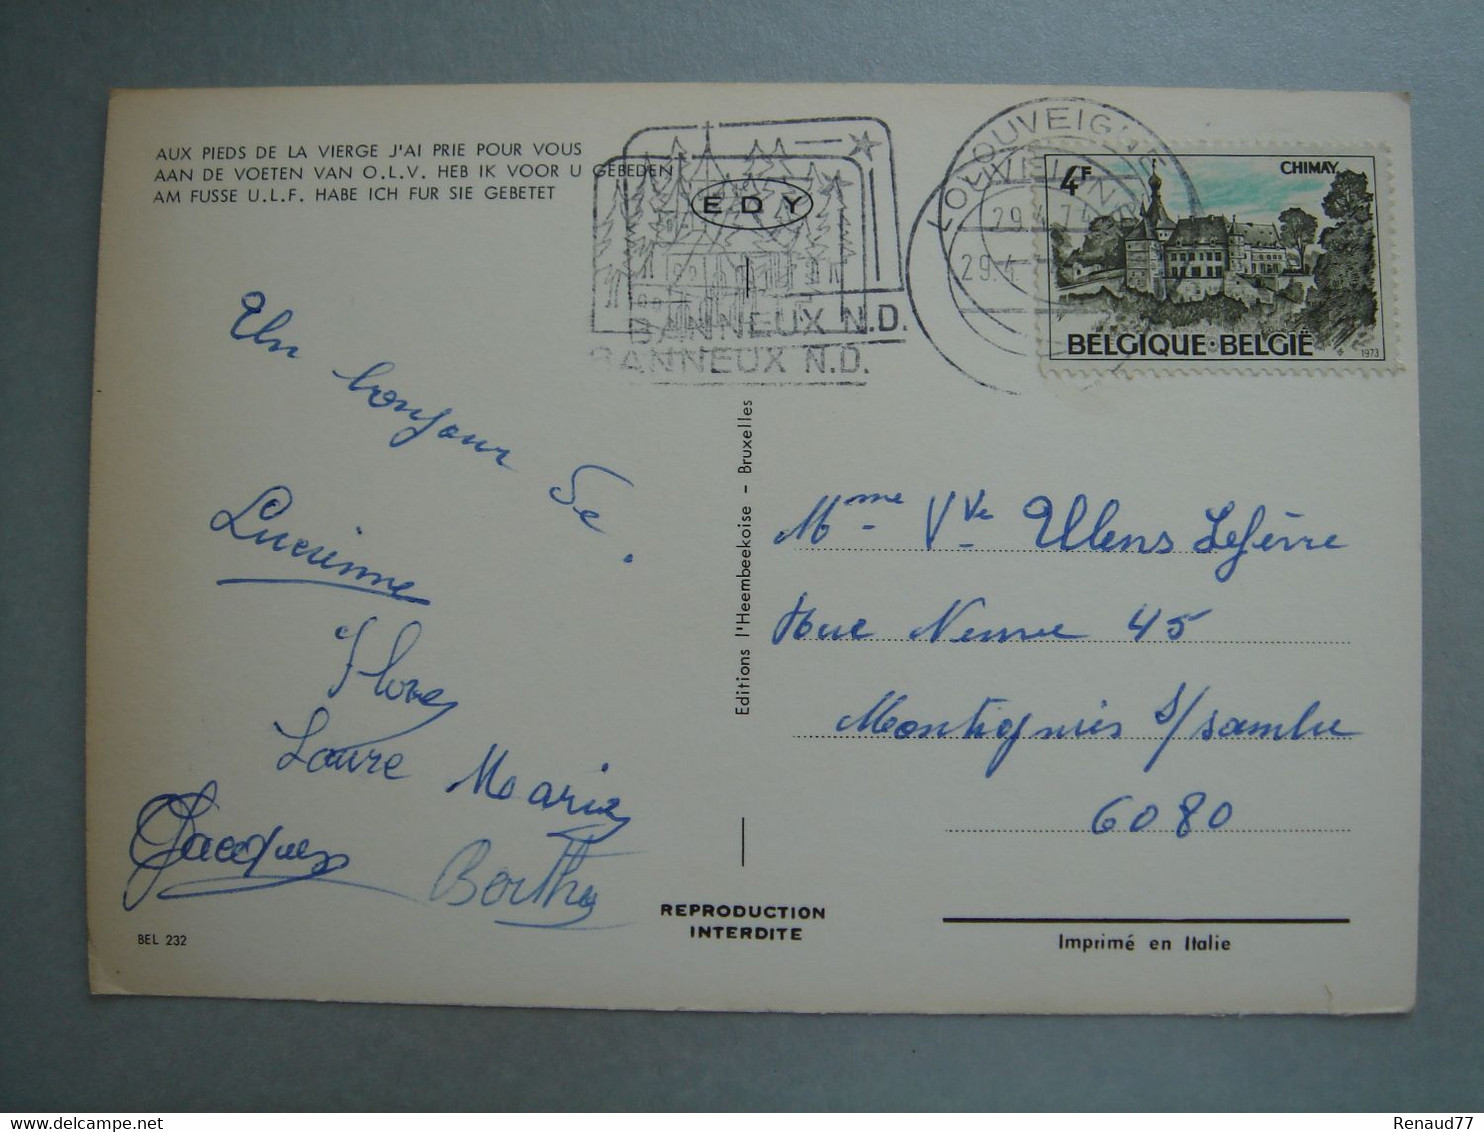 AUX PIEDS DE LA VIERGE J'AI PRIE POUR VOUS
AAN DE VOETEN VAN O.L.V. HEB IK VOOR U GEBEDEN
AM FUSSE U.L.F. HABE ICH FUR SIE GEBETET
EDY
BANNEUX N.D.
BANNEUX N.D.
LOUVEIGNE
29.4.74
29.4
4F
CHIMAY
BELGIQUE·BELGIË
1973
Un bonjour de.
Lucienne
Flore
Laure Marie
Jacques
Berthe
BEL 232
Editions l'Heembeekoise - Bruxelles
REPRODUCTION
INTERDITE
Mme Vve Ullens Lefèvre
Rue Neuve 45
Montignies s/sambre
6080
Imprimé en Italie
Renaud77
delcampe.net